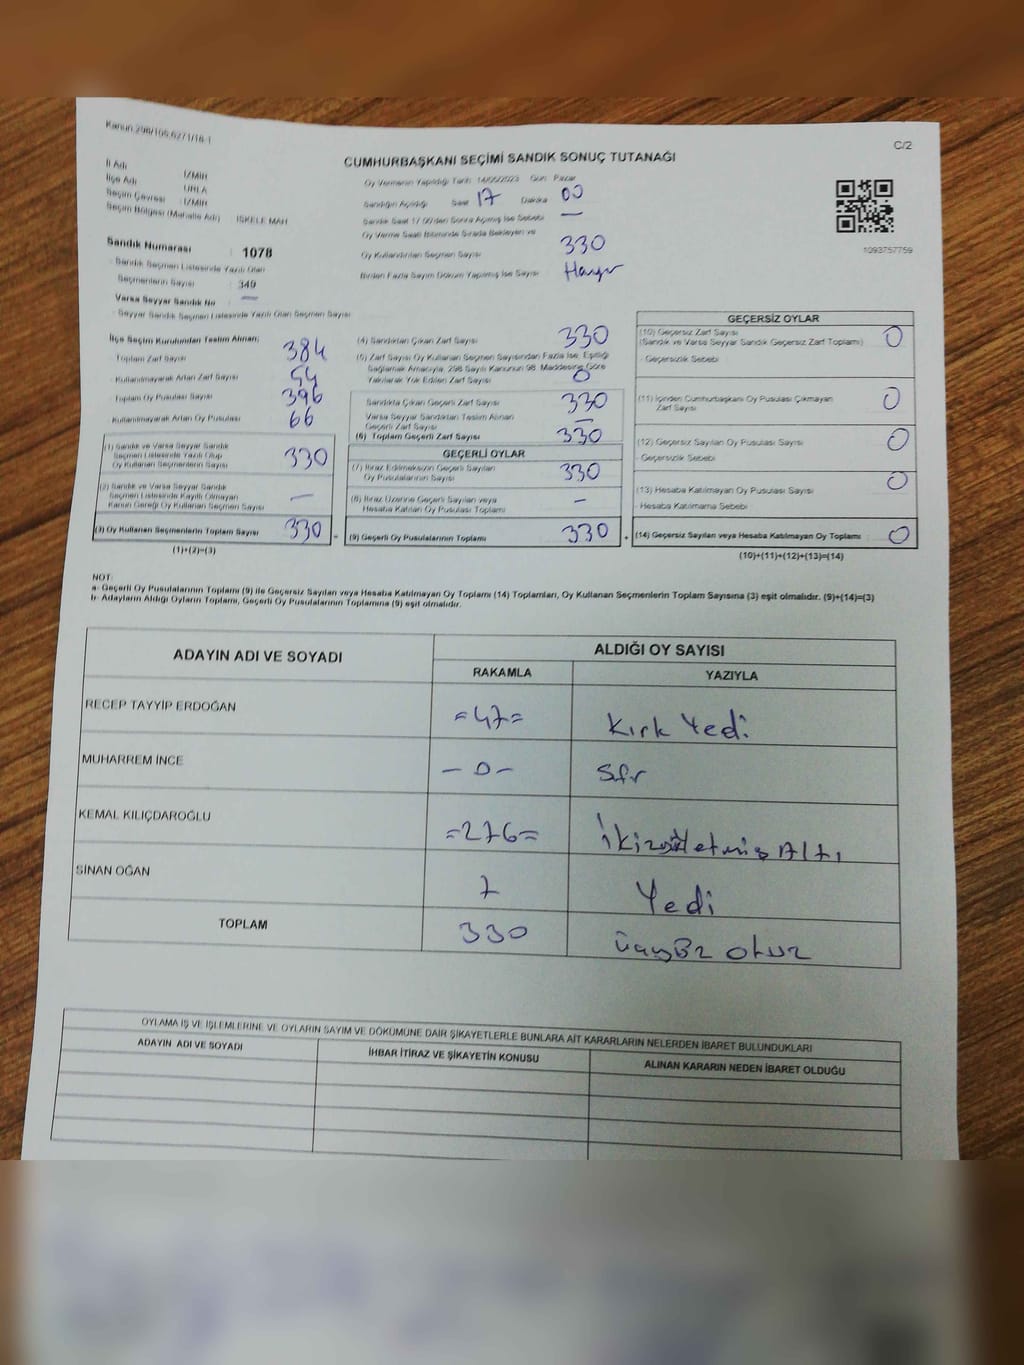 Kanun 298/105,6271/16-1
C/2
CUMHURBAŞKANI SEÇİMİ SANDIK SONUÇ TUTANAĞI
İl Adı : İZMİR
İlçe Adı : URLA
Seçim Çevresi : İZMİR
Seçim Bölgesi (Mahalle Adı) : İSKELE MAH.
Sandık Numarası : 1078
- Sandık Seçmen Listesinde Yazılı Olan
Seçmenlerin Sayısı : 349
Varsa Seyyar Sandık No : —
- Seyyar Sandık Seçmen Listesinde Yazılı Olan Seçmen Sayısı
Oy Vermenin Yapıldığı Tarih: 14/05/2023 Gün: Pazar
Sandığın Açıldığı Saat 17 Dakika 00
Sandık Saat 17.00'den Sonra Açılmış İse Sebebi —
Oy Verme Saati Bitiminde Sırada Bekleyen ve
Oy Kullandırılan Seçmen Sayısı 330
Birden Fazla Sayım Döküm Yapılmış İse Sayısı Hayır
1093757759
İlçe Seçim Kurulundan Teslim Alınan;
- Toplam Zarf Sayısı 384
- Kullanılmayarak Artan Zarf Sayısı 54
- Toplam Oy Pusulası Sayısı 396
- Kullanılmayarak Artan Oy Pusulası 66
(1) Sandık ve Varsa Seyyar Sandık
Seçmen Listesinde Yazılı Olup
Oy Kullanan Seçmenlerin Sayısı 330
(2) Sandık ve Varsa Seyyar Sandık
Seçmen Listesinde Kayıtlı Olmayan
Kanun Gereği Oy Kullanan Seçmen Sayısı —
(3) Oy Kullanan Seçmenlerin Toplam Sayısı 330
(1)+(2)=(3)
(4) Sandıktan Çıkan Zarf Sayısı 330
(5) Zarf Sayısı Oy Kullanan Seçmen Sayısından Fazla İse, Eşitliği
Sağlamak Amacıyla, 298 Sayılı Kanunun 98. Maddesine Göre
Yakılarak Yok Edilen Zarf Sayısı 0
Sandıkta Çıkan Geçerli Zarf Sayısı 330
Varsa Seyyar Sandıktan Teslim Alınan
Geçerli Zarf Sayısı —
(6) Toplam Geçerli Zarf Sayısı 330
GEÇERLİ OYLAR
(7) İtiraz Edilmeksizin Geçerli Sayılan
Oy Pusulalarının Sayısı 330
(8) İtiraz Üzerine Geçerli Sayılan veya
Hesaba Katılan Oy Pusulası Toplamı —
= (9) Geçerli Oy Pusulalarının Toplamı 330
GEÇERSİZ OYLAR
(10) Geçersiz Zarf Sayısı 0
(Sandık ve Varsa Seyyar Sandık Geçersiz Zarf Toplamı)
- Geçersizlik Sebebi
(11) İçinden Cumhurbaşkanı Oy Pusulası Çıkmayan
Zarf Sayısı 0
(12) Geçersiz Sayılan Oy Pusulası Sayısı 0
- Geçersizlik Sebebi
(13) Hesaba Katılmayan Oy Pusulası Sayısı 0
- Hesaba Katılmama Sebebi
+ (14) Geçersiz Sayılan veya Hesaba Katılmayan Oy Toplamı 0
(10)+(11)+(12)+(13)=(14)
NOT:
a- Geçerli Oy Pusulalarının Toplamı (9) ile Geçersiz Sayılan veya Hesaba Katılmayan Oy Toplamı (14) Toplamları, Oy Kullanan Seçmenlerin Toplam Sayısına (3) eşit olmalıdır. (9)+(14)=(3)
b- Adayların Aldığı Oyların Toplamı, Geçerli Oy Pusulalarının Toplamına (9) eşit olmalıdır.
ADAYIN ADI VE SOYADI
ALDIĞI OY SAYISI
RAKAMLA YAZIYLA
RECEP TAYYİP ERDOĞAN =47= Kırk Yedi
MUHARREM İNCE —0— Sıfır
KEMAL KILIÇDAROĞLU =276= İkiyüzYetmiş Altı
SİNAN OĞAN 7 Yedi
TOPLAM 330 üçyüz otuz
OYLAMA İŞ VE İŞLEMLERİNE VE OYLARIN SAYIM VE DÖKÜMÜNE DAİR ŞİKAYETLERLE BUNLARA AİT KARARLARIN NELERDEN İBARET BULUNDUKLARI
ADAYIN ADI VE SOYADI İHBAR İTİRAZ VE ŞİKAYETİN KONUSU ALINAN KARARIN NEDEN İBARET OLDUĞU